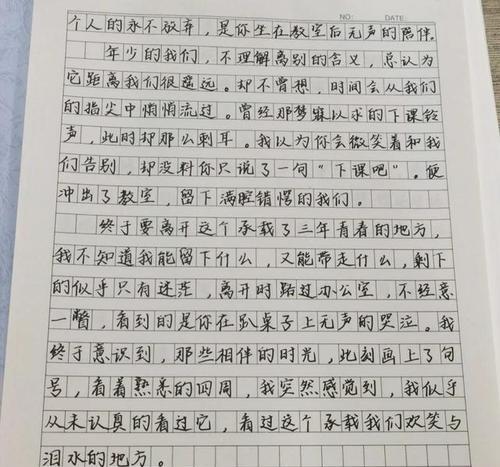 NO: DATE:
个人的永不放弃，是你坐在教室后无声的陪伴。
年少的我们，不理解离别的含义，总认为
它距离我们很遥远。却不曾想，时间会从我们
的指尖中悄悄流过。曾经那梦寐以求的下课铃
声，此时却那么刺耳。我以为你会微笑着和我
们告别，却没料你只说了一句“下课吧”。便
冲出了教室，留下满腔错愕的我们。
终于要离开这个承载了三年青春的地方，
我不知道我能留下什么，又能带走什么，剩下
的似乎只有迷茫，离开时路过办公室，不经意
一瞥，看到的是你在趴桌子上无声的哭泣。我
终于意识到，那些相伴的时光，此刻画上了句
号，看着熟悉的四周，我突然感觉到，我似乎
从未认真的看过它，看过这个承载我们欢笑与
泪水的地方。